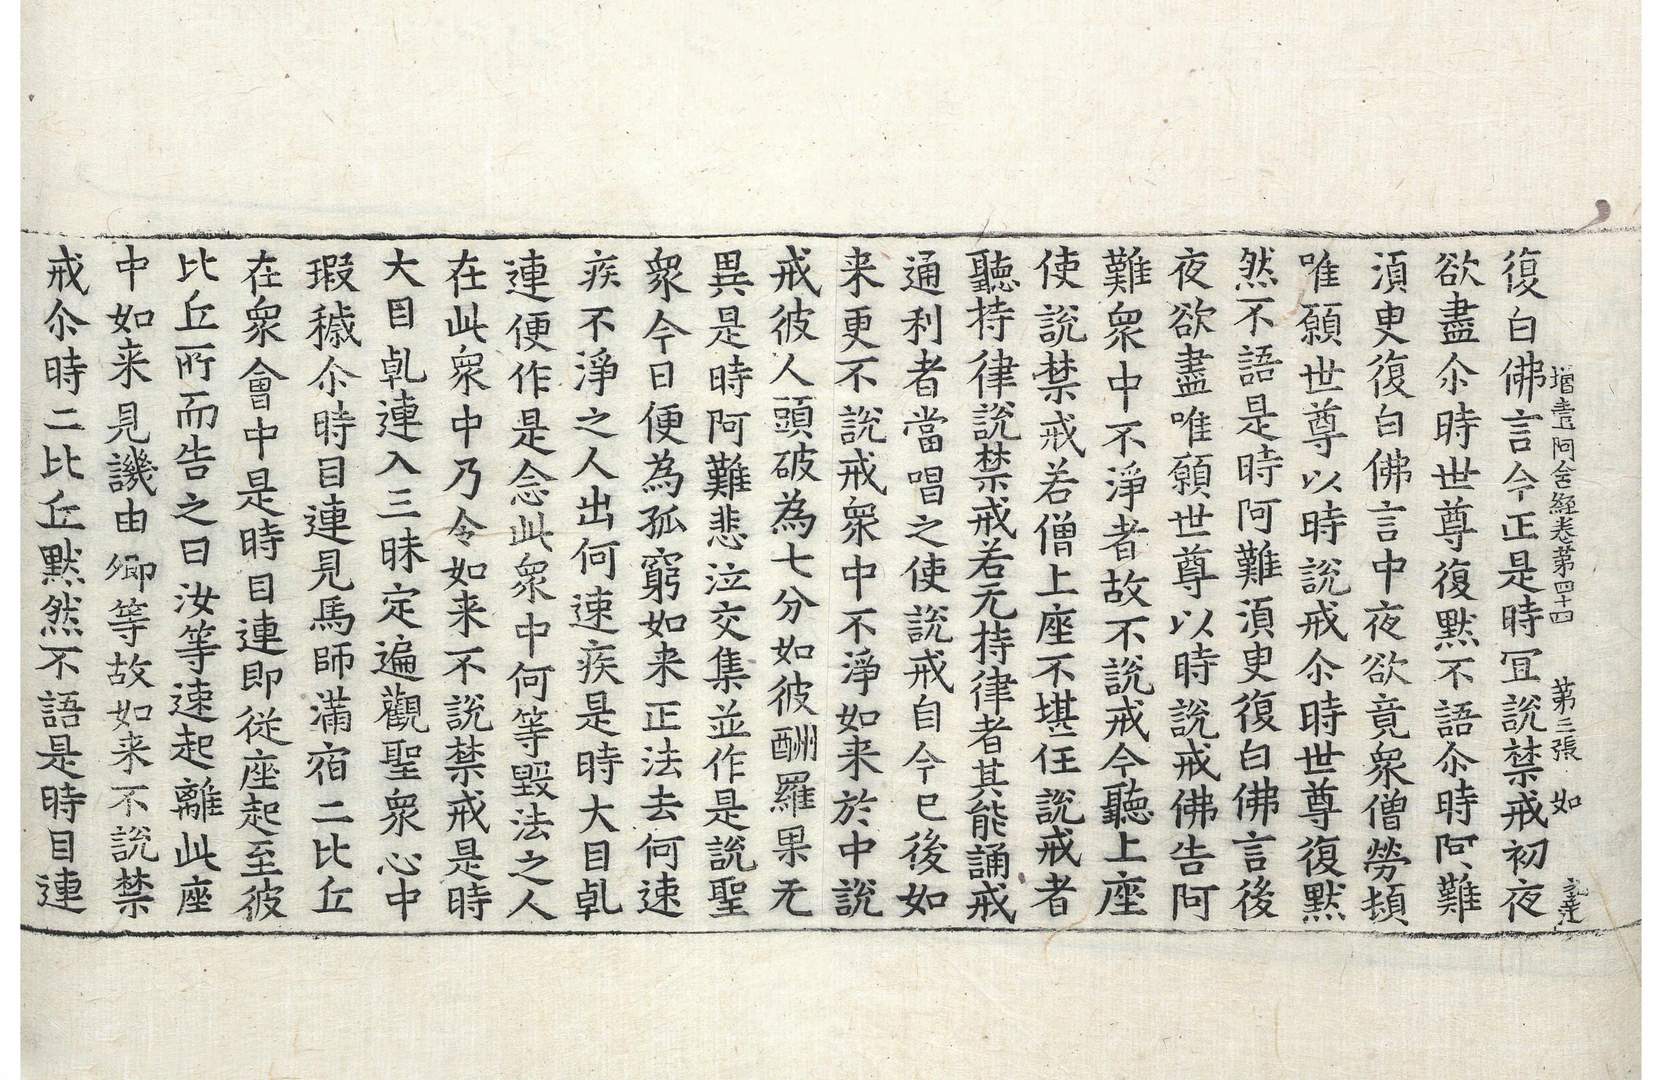 增壹阿含經卷第四十四 第三張 如
復白佛言今正是時冝說禁戒初夜
欲盡尒時世尊復默不語尒時阿難
湏臾復白佛言中夜欲竟衆僧勞頻
唯願世尊以時說戒尒時世尊復默
然不語是時阿難湏臾復白佛言後
夜欲盡唯願世尊以時說戒佛告阿
難衆中不淨者故不說戒今聽上座
使說禁戒若僧上座不堪任說戒者
聽持律說禁戒若无持律者其能誦戒
通利者當唱之使說戒自今已後如
来更不說戒衆中不淨如来於中說
戒彼人頭破為七分如彼酬羅果无
異是時阿難悲泣交集並作是說聖
衆今日便為孤窮如来正法去何速
疾不淨之人出何速疾是時大目乹
連便作是念此衆中何等毀法之人
在此衆中乃令如来不說禁戒是時
大目乹連入三昧定遍觀聖衆心中
瑕穢尒時目連見馬師滿宿二比丘
在衆會中是時目連即從座起至彼
比丘所而告之曰汝等速起離此座
中如来見譏由卿等故如来不說禁
戒尒時二比丘默然不語是時目連